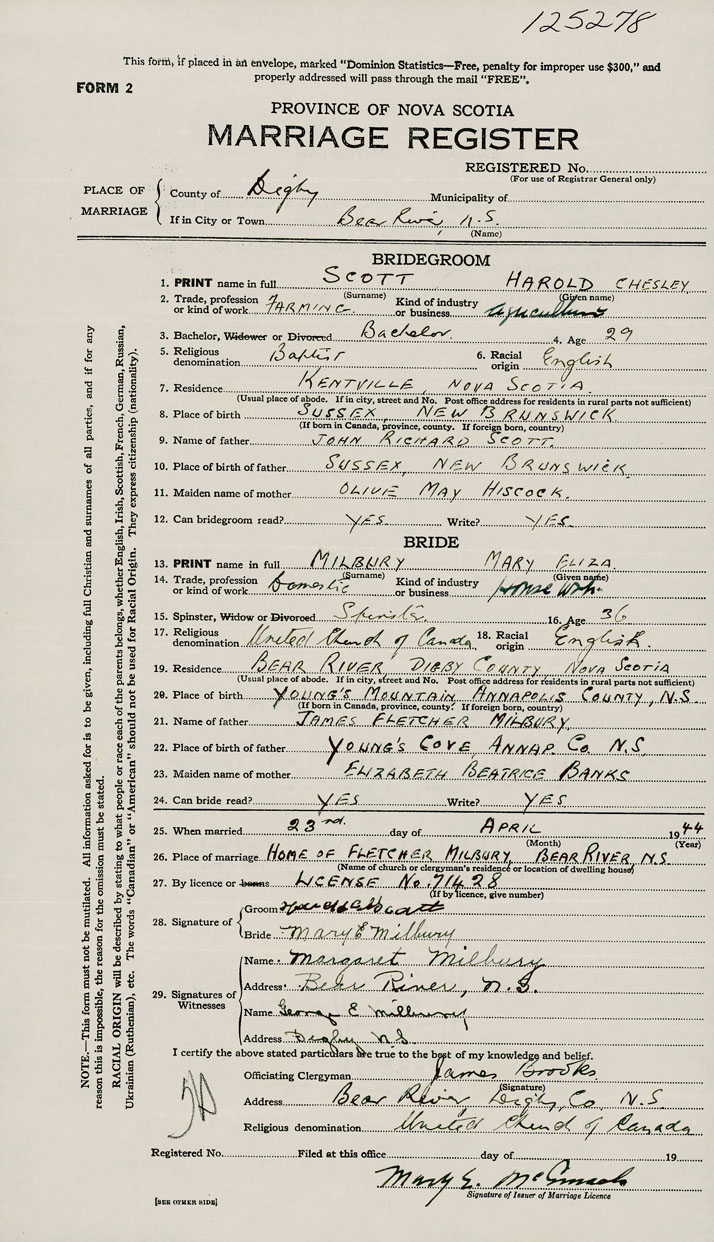 125278
This form, if placed in an envelope, marked "Dominion Statistics—Free, penalty for improper use $300," and
properly addressed will pass through the mail "FREE".
FORM 2
PROVINCE OF NOVA SCOTIA
MARRIAGE REGISTER
REGISTERED No.
(For use of Registrar General only)
PLACE OF MARRIAGE
County of Digby Municipality of
If in City or Town Bear River N.S.
(Name)
BRIDEGROOM
1. PRINT name in full SCOTT HAROLD CHESLEY
(Surname) (Given name)
2. Trade, profession or kind of work FARMING Kind of industry or business Agriculture
3. Bachelor, Widower or Divorced Bachelor 4. Age 29
5. Religious denomination Baptist 6. Racial origin English
7. Residence KENTVILLE, NOVA SCOTIA.
(Usual place of abode. If in city, street and No. Post office address for residents in rural parts not sufficient)
8. Place of birth SUSSEX, NEW BRUNSWICK.
(If born in Canada, province, county. If foreign born, country)
9. Name of father JOHN RICHARD SCOTT.
10. Place of birth of father SUSSEX, NEW BRUNSWICK.
11. Maiden name of mother OLIVE MAY HISCOCK.
12. Can bridegroom read? YES Write? YES.
BRIDE
13. PRINT name in full MILBURY MARY ELIZA.
(Surname) (Given name)
14. Trade, profession or kind of work Domestic Kind of industry or business House Wk.
15. Spinster, Widow or Divorced Spinster 16. Age 36
17. Religious denomination United Church of Canada 18. Racial origin English.
19. Residence BEAR RIVER DIGBY COUNTY, NOVA SCOTIA
(Usual place of abode. If in city, street and No. Post office address for residents in rural parts not sufficient)
20. Place of birth YOUNG'S MOUNTAIN ANNAPOLIS COUNTY, N.S.
(If born in Canada, province, county. If foreign born, country)
21. Name of father JAMES FLETCHER MILBURY.
22. Place of birth of father YOUNG'S COVE ANNAP. CO. N.S.
23. Maiden name of mother ELIZABETH BEATRICE BANKS
24. Can bride read? YES Write? YES
25. When married 23rd. day of APRIL 1944
(Month) (Year)
26. Place of marriage HOME OF FLETCHER MILBURY, BEAR RIVER, N.S.
(Name of church or clergyman's residence or location of dwelling house)
27. By licence or banns LICENSE No. 71428
(If by licence, give number)
28. Signature of
Groom Harold C Scott
Bride Mary E Milbury
29. Signatures of Witnesses
Name Margaret Milbury
Address Bear River, N.S.
Name George E Milbury
Address Digby N.S.
I certify the above stated particulars are true to the best of my knowledge and belief.
Officiating Clergyman James Brooks.
(Signature)
Address Bear River, Digby, Co. N.S.
Religious denomination United Church of Canada
Registered No. Filed at this office day of 19
Mary E.
Signature of Issuer of Marriage Licence
[SEE OTHER SIDE]
NOTE.—This form must not be mutilated. All information asked for is to be given, including full Christian and surnames of all parties, and if for any
reason this is impossible, the reason for the omission must be stated.
RACIAL ORIGIN will be described by stating to what people or race each of the parents belongs, whether English, Irish, Scottish, French, German, Russian,
Ukrainian (Ruthenian), etc. The words "Canadian" or "American" should not be used for Racial Origin. They express citizenship (nationality).